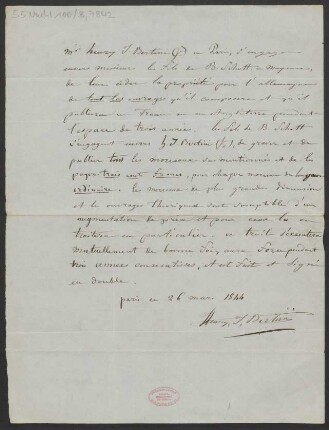 55 Nachl. 100/B, 7842
Mr Henry J Bertini (Jr) à Paris, s'engage
envers messieurs les fils de B. Schott à Mayence,
de leur céder la propriété pour l'allemagne
de tout les ouvrages qu'il composera et qu'il
publiera en France ou en Angleterre pendant
l'espace de trois années. Les fils de B Schott
s'engagent envers H J Bertini (Jr), de graver et de
publier tous les morceaux susmentionnés et de les
payer trois cents francs, pour chaque morceau de
ordinaire. les morceaux de plus grande dimension
et les ouvrages théoriques sont susceptibles d'une
augmentation de prix et pour ceux là on
traitera en particulier. ce traité s'exécutera
mutuellement de bonne foi, aura son
trois années consécutives, et est fait et signé
en double.
paris ce 26 mars 1844
Henry J, Bertini